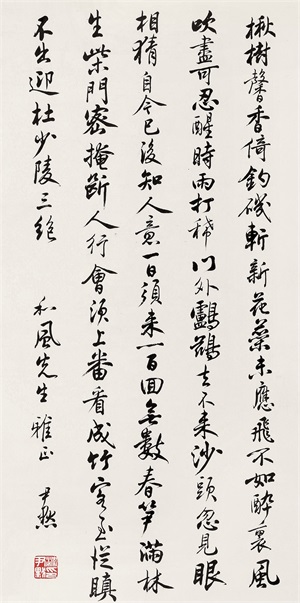 楸樹馨香倚釣磯斬新花蘂未應飛不如醉裏風
吹盡可忍醒時雨打稀門外鸕鷀去不來沙頭忽見眼
相猜自今已後知人意一日須來一百回無數春笋滿林
生柴門密掩斷人行會須上番看成竹客至從瞋
不出迎杜少陵三絕 和風先生雅正 尹默